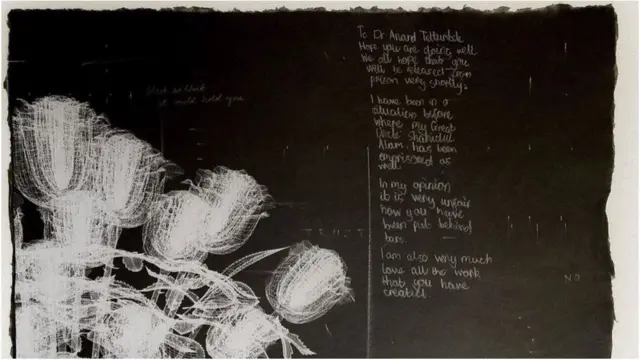 To Dr Anand Teltumbde
Hope you are doing well
We all hope that you
will be released from
prison very shortly.
I have been in a
situation before
where my Great
Uncle Shahidul
Alam has been
imprisoned as
well
In my opinion
it is very unfair
how you have
been put behind
bars.
I am also very much
love all the work
that you have
created.
black
it could hold you
NO